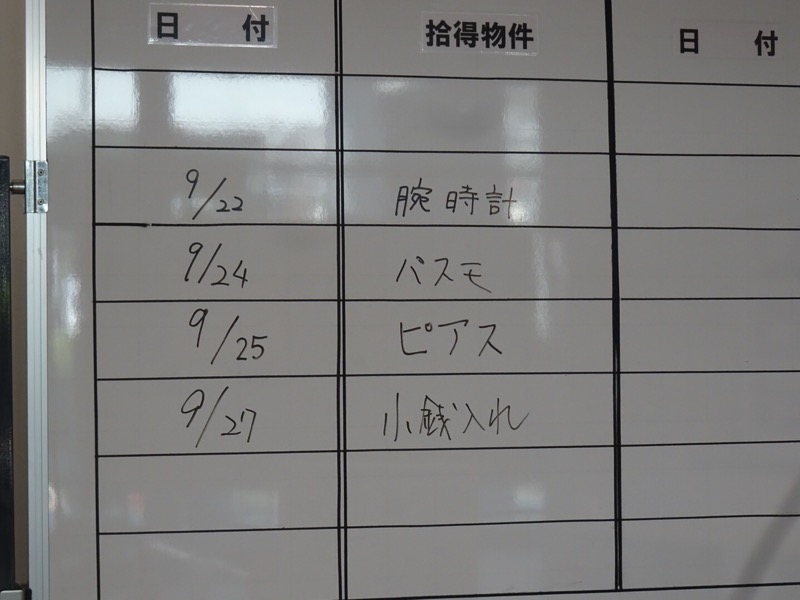 日 付 拾得物件 日 付
9/22 腕時計
9/24 パスモ
9/25 ピアス
9/27 小銭入れ